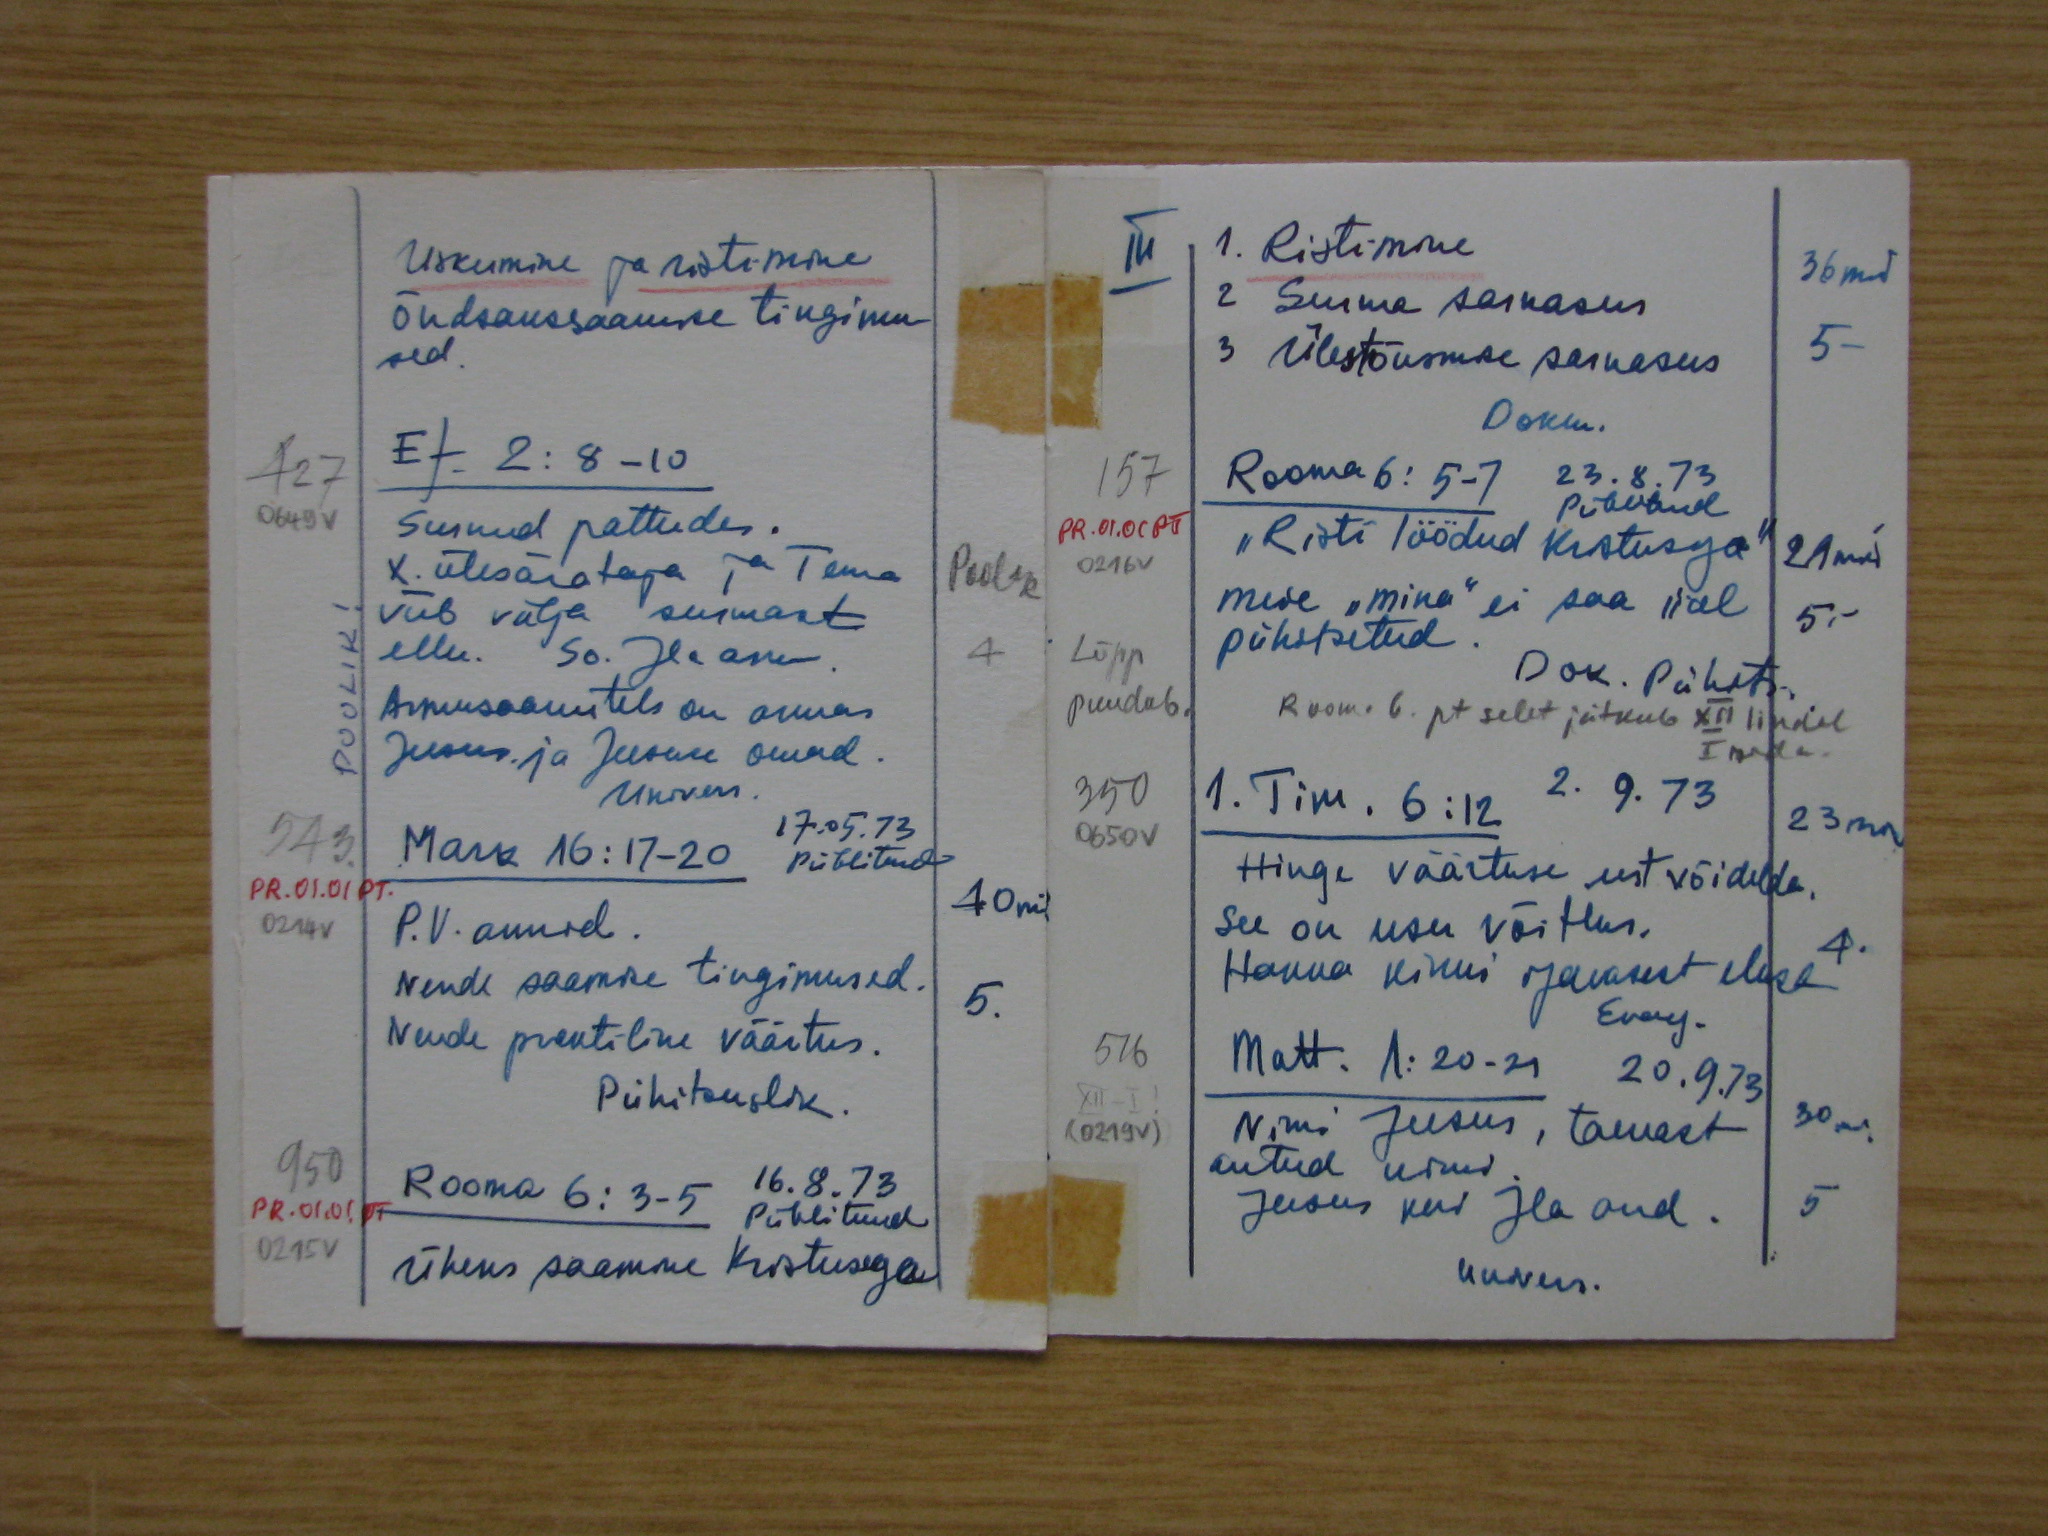 Uskumine ja ristimine
Õndsakssaamise tingimu-
sed.
427
0649V
Ef. 2:8-10
Surnud pattudes.
X. ülesärataja ja Tema
viib välja surmast
ellu. So. Jla arm.
Armusaanutels on armas
Jeesus ja Jeesuse omad.
Univers.
POOLIK!
Poolik
4
543.
PR.01.01 PT.
0214V
Mark 16:17-20
17.05.73
Piiblitund
P.V. annid.
Nende saamise tingimused.
Nende praktiline väärtus.
Pühitsuslik.
40 min
5.
950
PR.01.01 PT
0215V
Rooma 6: 3-5
16.8.73
Piiblitund
Üheks saamine Kristusega
III
1. Ristimine
2 Surma sarnasus
3 Ülestõusmise sarnasus
Dokm.
36 min
5-
157
PR.01.01 PT
0216V
Lõpp
puudub.
Rooma 6: 5-7 23.8.73
Piiblitund
„Risti löödud Kristusega"
meie „mina" ei saa iial
pühitsetud.
Dok. Pühits.
21 min
5.-
Rooma 6. pt selet jätkub XII lindil
I rada.
350
0650V
1. Tim. 6:12 2. 9. 73
Hinge väärtuse eest võidelda.
See on usu võitlus.
Hakka kinni igavesest elust
Evang.
23 min
4.
516
XII-I!
(0219V)
Matt. 1:20-21 20.9.73
Nimi Jeesus, taevast
antud nimi.
Jeesus kui Jla and.
Univers.
30 mi.
5